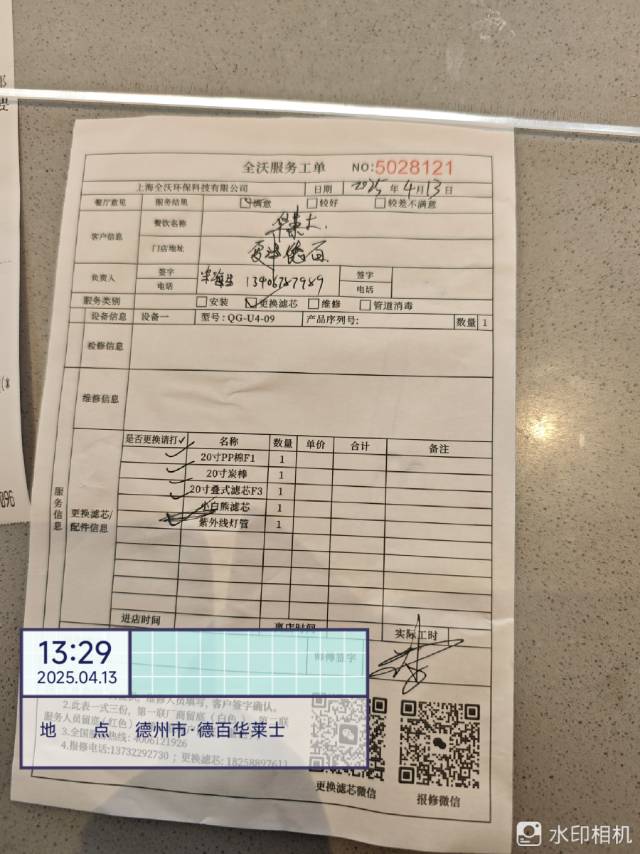 全沃服务工单 NO:5028121
上海全沃环保科技有限公司 日期 2025年4月13日
餐厅意见 服务结果 ☑满意 □较好 □较差不满意
客户信息 餐饮名称 华莱士
门店地址 德百
负责人 签字 签字
电话 电话
服务类别 □安装 ☑更换滤芯 □维修 □管道消毒
设备信息 设备一 型号:QG-U4-09 产品序列号: 数量 1
检修信息
维修信息
服务信息
更换滤芯/配件信息
是否更换请打✓ 名称 数量 单价 合计 备注
✓ 20寸PP棉F1 1
✓ 20寸炭棒 1
✓ 20寸叠式滤芯F3 1
小白熊滤芯 1
紫外线灯管 1
进店时间 离店时间 实际工时
师傅签字
维修人员填写,客户签字确认。
2.此表一式三份,第一联厂商留底(白色),第二联
服务人员留底(红色)
3.全国服务热线:4006121926
4.报修电话:13732292730;更换滤芯:18258897611
更换滤芯微信 报修微信
13:29
2025.04.13
地 点 德州市·德百华莱士
水印相机